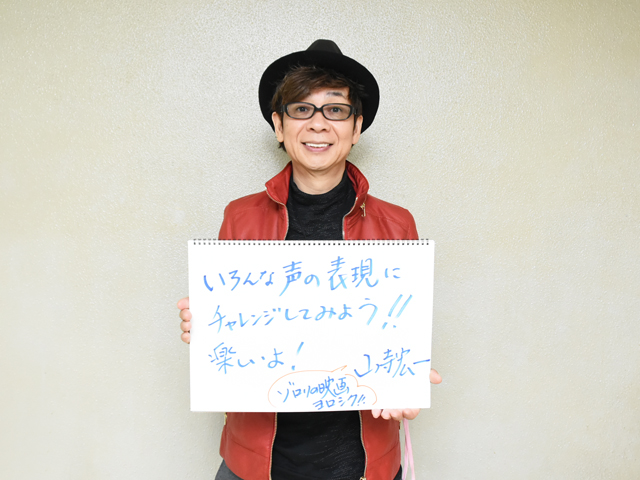 いろんな声の表現に
チャレンジしてみよう!!
楽しいよ!
山寺宏一
ゾロリの映画
ヨロシク!!